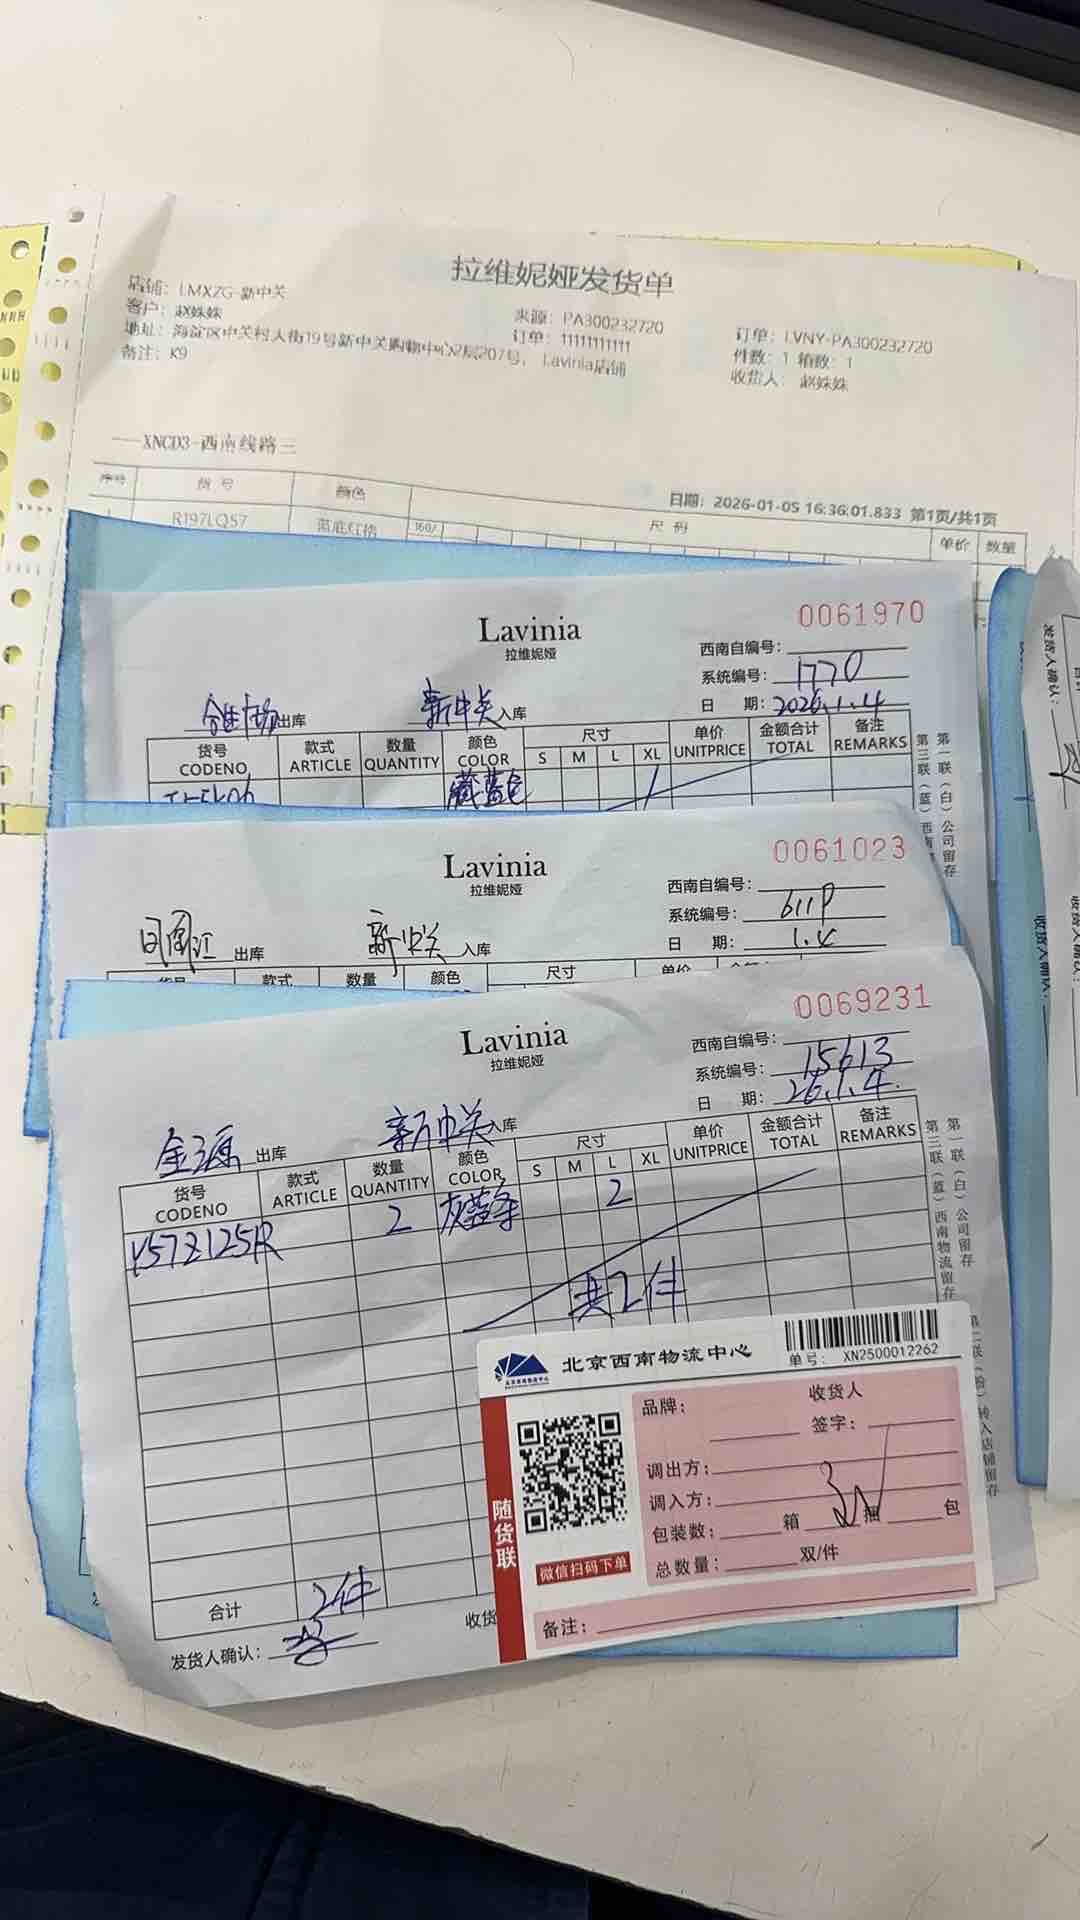 拉维妮娅发货单
店铺: LMXZG-新中关
客户: 赵姝姝
来源: PA300232720
订单: LVNY-PA300232720
地址: 海淀区中关村大街19号新中关购物中心2层207号, Lavinia店铺
订单: 11111111111
件数: 1 箱数: 1
备注: K9
收货人: 赵姝姝
XNCD3-西南线路三
日期: 2026-01-05 16:36:01.833 第1页/共1页
序号 货号 颜色 尺码 单价 数量
R197LQ57 蓝底红格 160/
Lavinia
拉维妮娅
0061970
西南自编号:
系统编号: 1770
日 期: 2026.1.4
出库 新中关 入库
货号 CODENO 款式 ARTICLE 数量 QUANTITY 颜色 COLOR 尺寸 S M L XL 单价 UNITPRICE 金额合计 TOTAL 备注 REMARKS
藏蓝色 1
第一联(白)公司留存
第三联(蓝)西南
Lavinia
拉维妮娅
0061023
西南自编号:
系统编号:
日 期: 1.4
出库 新中关 入库
款式 数量 颜色 尺寸 单价
Lavinia
拉维妮娅
0069231
西南自编号:
系统编号: 15613
日 期: 26.1.4.
金源 出库 新中关 入库
货号 CODENO 款式 ARTICLE 数量 QUANTITY 颜色 COLOR 尺寸 S M L XL 单价 UNITPRICE 金额合计 TOTAL 备注 REMARKS
Y57Z125R 2 灰蓝条 2
共2件
合计 2件
发货人确认:
收货
第一联(白)公司留存
第三联(蓝)西南物流留存
转入店铺留存
北京西南物流中心
单号: XN2500012262
随货联
微信扫码下单
品牌:
收货人
签字:
调出方:
调入方:
包装数: 箱 捆 包
总数量: 双/件
备注:
发货人确认:
收货人确认: